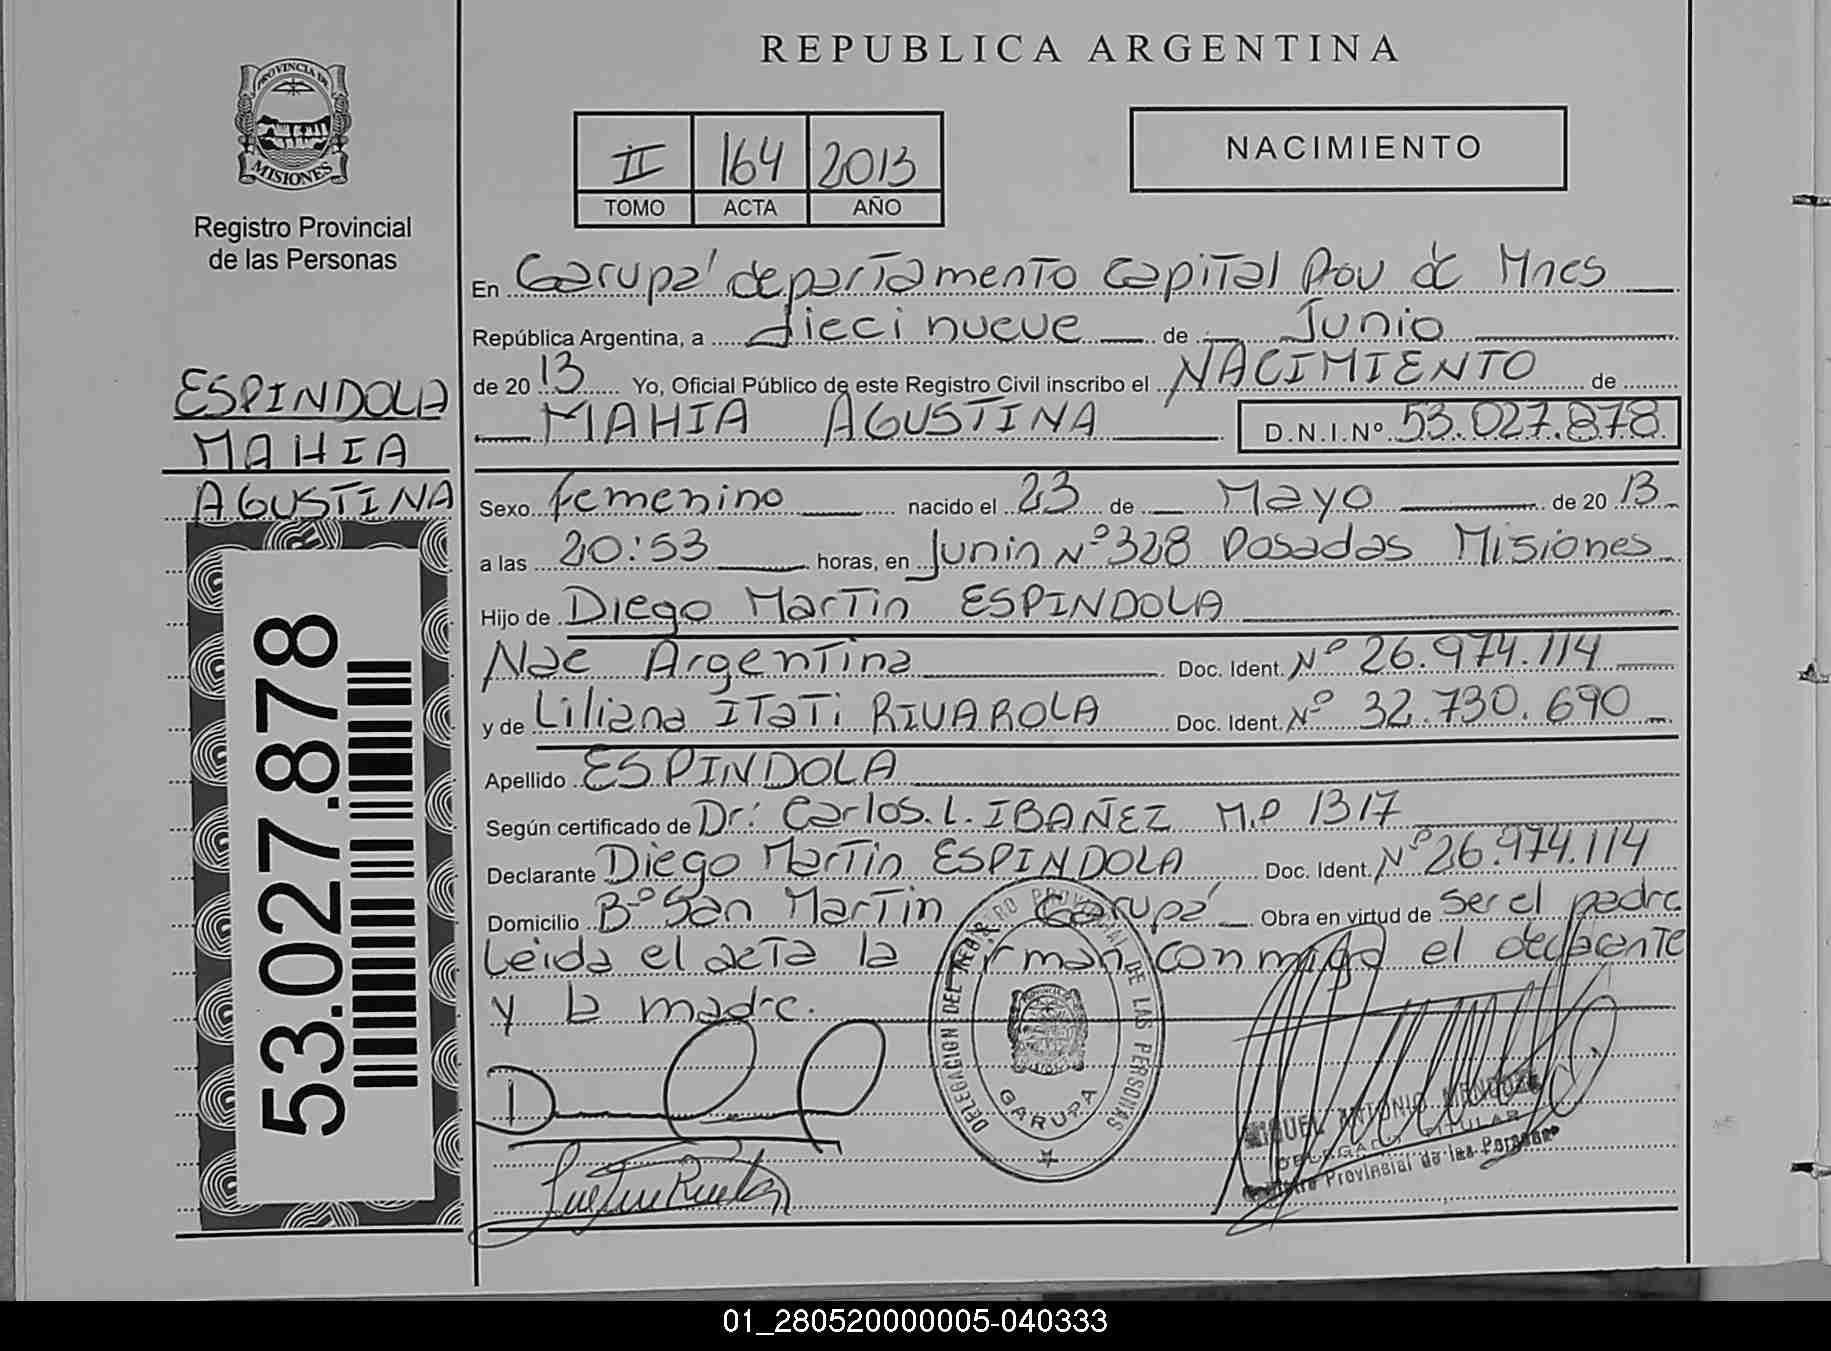 REPUBLICA ARGENTINA
PROVINCIA DE
MISIONES
Registro Provincial
de las Personas
II 164 2013
TOMO ACTA AÑO
NACIMIENTO
En Garupá departamento Capital Pov de Mnes
República Argentina, a dieci nueve de Junio
de 20 13 Yo, Oficial Público de este Registro Civil inscribo el NACIMIENTO de
MAHIA AGUSTINA D.N.I.Nº 53.027.878
ESPINDOLA
MAHIA
AGUSTINA
53.027.878
Sexo femenino nacido el 23 de Mayo de 20 13
a las 20:53 horas, en Junin Nº 328 Posadas Misiones
Hijo de Diego Martin ESPINDOLA
Nac Argentina Doc. Ident. Nº 26.974.114
y de Liliana ITaTi RIVAROLA Doc. Ident. Nº 32.730.690
Apellido ESPINDOLA
Según certificado de Dr: Carlos. L. IBAÑEZ M.P 1317
Declarante Diego Martin ESPINDOLA Doc. Ident. Nº 26.974.114
Domicilio Bº San Martin Garupá Obra en virtud de ser el padre
Leida el acta la firman conmigo el declarante
y la madre.
DELEGACION DEL REGISTRO PROVINCIAL DE LAS PERSONAS
GARUPA
MIGUEL ANTONIO MENDOZA
DELEGADO TITULAR
Provincial de las Personas
01_280520000005-040333